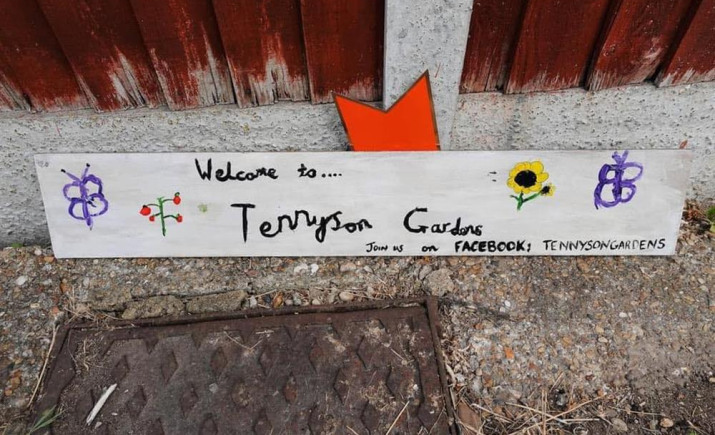 Welcome to....
Tennyson Gardens
JOIN US on FACEBOOK; TENNYSONGARDENS